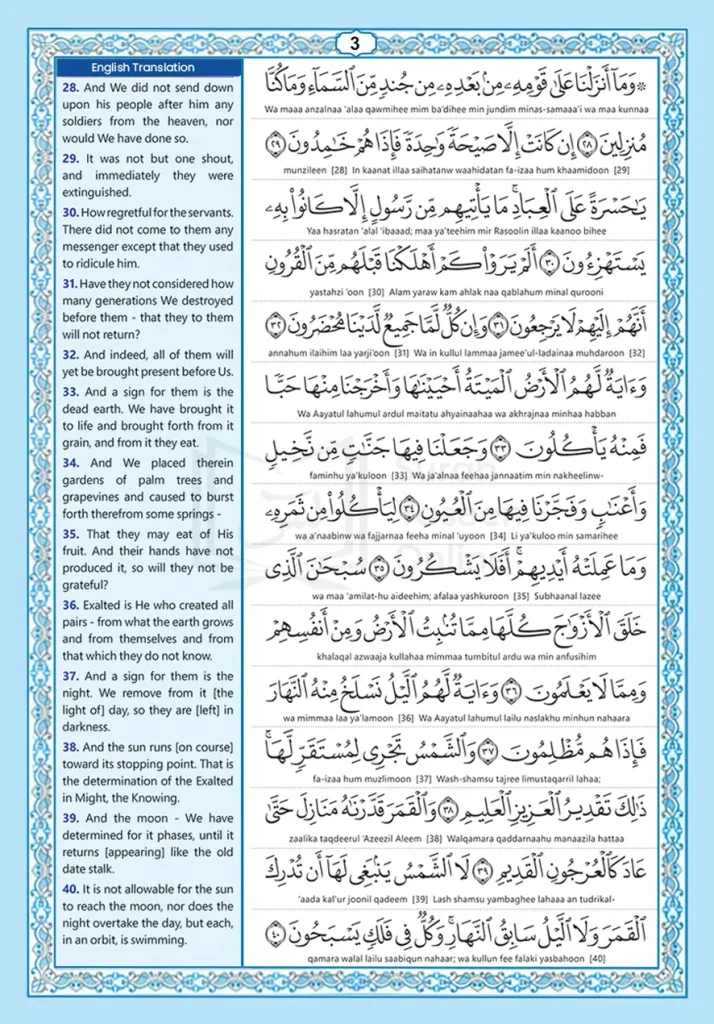 3
English Translation
28. And We did not send down
upon his people after him any
soldiers from the heaven, nor
would We have done so.
29. It was not but one shout,
and immediately they were
extinguished.
30. How regretful for the servants.
There did not come to them any
messenger except that they used
to ridicule him.
31. Have they not considered how
many generations We destroyed
before them - that they to them
will not return?
32. And indeed, all of them will
yet be brought present before Us.
33. And a sign for them is the
dead earth. We have brought it
to life and brought forth from it
grain, and from it they eat.
34. And We placed therein
gardens of palm trees and
grapevines and caused to burst
forth therefrom some springs -
35. That they may eat of His
fruit. And their hands have not
produced it, so will they not be
grateful?
36. Exalted is He who created all
pairs - from what the earth grows
and from themselves and from
that which they do not know.
37. And a sign for them is the
night. We remove from it [the
light of] day, so they are [left] in
darkness.
38. And the sun runs [on course]
toward its stopping point. That is
the determination of the Exalted
in Might, the Knowing.
39. And the moon - We have
determined for it phases, until it
returns [appearing] like the old
date stalk.
40. It is not allowable for the sun
to reach the moon, nor does the
night overtake the day, but each,
in an orbit, is swimming.
۞ وَمَآ أَنزَلْنَا عَلَىٰ قَوْمِهِۦ مِنۢ بَعْدِهِۦ مِن جُندٍ مِّنَ ٱلسَّمَآءِ وَمَا كُنَّا
Wa maaa anzalnaa 'alaa qawmihee mim ba'dihee min jundim minas-samaaa'i wa maa kunnaa
مُنزِلِينَ ٢٨ إِن كَانَتْ إِلَّا صَيْحَةً وَٰحِدَةً فَإِذَا هُمْ خَٰمِدُونَ ٢٩
munzileen [28] In kaanat illaa saihatanw waahidatan fa-izaa hum khaamidoon [29]
يَٰحَسْرَةً عَلَى ٱلْعِبَادِ ۚ مَا يَأْتِيهِم مِّن رَّسُولٍ إِلَّا كَانُوا۟ بِهِۦ
Yaa hasratan 'alal 'ibaaad; maa ya'teehim mir Rasoolin illaa kaanoo bihee
يَسْتَهْزِءُونَ ٣٠ أَلَمْ يَرَوْا۟ كَمْ أَهْلَكْنَا قَبْلَهُم مِّنَ ٱلْقُرُونِ
yastahzi 'oon [30] Alam yaraw kam ahlak naa qablahum minal qurooni
أَنَّهُمْ إِلَيْهِمْ لَا يَرْجِعُونَ ٣١ وَإِن كُلٌّ لَّمَّا جَمِيعٌ لَّدَيْنَا مُحْضَرُونَ ٣٢
annahum ilaihim laa yarji'oon [31] Wa in kullul lammaa jamee'ul-ladainaa muhdaroon [32]
وَءَايَةٌ لَّهُمُ ٱلْأَرْضُ ٱلْمَيْتَةُ أَحْيَيْنَٰهَا وَأَخْرَجْنَا مِنْهَا حَبًّا
Wa Aayatul lahumul ardul maitatu ahyainaahaa wa akhrajnaa minhaa habban
فَمِنْهُ يَأْكُلُونَ ٣٣ وَجَعَلْنَا فِيهَا جَنَّٰتٍ مِّن نَّخِيلٍ
faminhu ya'kuloon [33] Wa ja'alnaa feehaa jannaatim min nakheelinw-
وَأَعْنَٰبٍ وَفَجَّرْنَا فِيهَا مِنَ ٱلْعُيُونِ ٣٤ لِيَأْكُلُوا۟ مِن ثَمَرِهِۦ
wa a'naabinw wa fajjarnaa feeha minal 'uyoon [34] Li ya'kuloo min samarihee
وَمَا عَمِلَتْهُ أَيْدِيهِمْ ۖ أَفَلَا يَشْكُرُونَ ٣٥ سُبْحَٰنَ ٱلَّذِى
wa maa 'amilat-hu aideehim; afalaa yashkuroon [35] Subhaanal lazee
خَلَقَ ٱلْأَزْوَٰجَ كُلَّهَا مِمَّا تُنۢبِتُ ٱلْأَرْضُ وَمِنْ أَنفُسِهِمْ
khalaqal azwaaja kullahaa mimmaa tumbitul ardu wa min anfusihim
وَمِمَّا لَا يَعْلَمُونَ ٣٦ وَءَايَةٌ لَّهُمُ ٱلَّيْلُ نَسْلَخُ مِنْهُ ٱلنَّهَارَ
wa mimmaa laa ya'lamoon [36] Wa Aayatul lahumul lailu naslakhu minhun nahaara
فَإِذَا هُم مُّظْلِمُونَ ٣٧ وَٱلشَّمْسُ تَجْرِى لِمُسْتَقَرٍّ لَّهَا ۚ
fa-izaa hum muzlimoon [37] Wash-shamsu tajree limustaqarril lahaa;
ذَٰلِكَ تَقْدِيرُ ٱلْعَزِيزِ ٱلْعَلِيمِ ٣٨ وَٱلْقَمَرَ قَدَّرْنَٰهُ مَنَازِلَ حَتَّىٰ
zaalika taqdeerul 'Azeezil Aleem [38] Walqamara qaddarnaahu manaazila hattaa
عَادَ كَٱلْعُرْجُونِ ٱلْقَدِيمِ ٣٩ لَا ٱلشَّمْسُ يَنۢبَغِى لَهَآ أَن تُدْرِكَ
'aada kal'ur joonil qadeem [39] Lash shamsu yambaghee lahaaa an tudrikal-
ٱلْقَمَرَ وَلَا ٱلَّيْلُ سَابِقُ ٱلنَّهَارِ ۚ وَكُلٌّ فِى فَلَكٍ يَسْبَحُونَ ٤٠
qamara walal lailu saabiqun nahaar; wa kullun fee falaki yasbahoon [40]